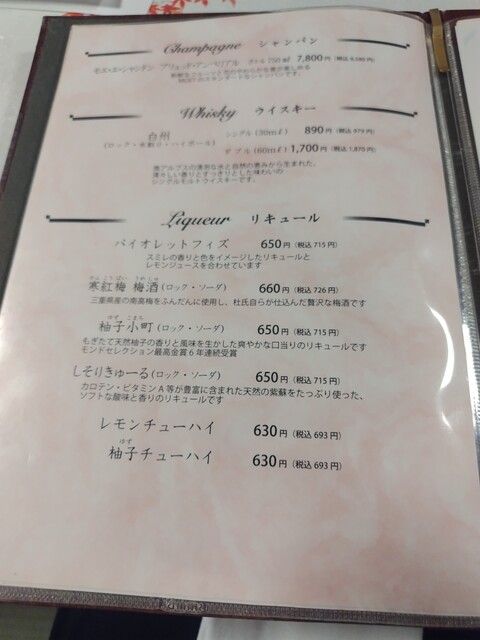 Champagne シャンパン
モエ・エ・シャンドン ブリュットアンペリアル ボトル 750 ㎖ 7,800円 (税込 8,580円)
Whisky ウイスキー
白州 シングル (30mℓ) 890円 (税込 979円)
(ロック・水割り・ハイボール)
ダブル (60mℓ) 1,700円 (税込 1,870円)
南アルプスの清冽な水と自然の恵みから生まれた、
清々しい香りとすっきりとした味わいの
シングルモルトウイスキーです。
Liqueur リキュール
バイオレットフィズ 650円 (税込 715円)
スミレの香りと色をイメージしたリキュールと
レモンジュースを合わせています
かんこうばい うめしゅ
寒紅梅 梅酒 (ロック・ソーダ) 660円 (税込 726円)
三重県産の南高梅をふんだんに使用し、杜氏自らが仕込んだ贅沢な梅酒です
ゆず こまち
柚子小町 (ロック・ソーダ) 650円 (税込 715円)
もぎたて天然柚子の香りと風味を生かした爽やかな口当りのリキュールです
モンドセレクション最高金賞6年連続受賞
しそりきゅーる (ロック・ソーダ) 650円 (税込 715円)
カロテン・ビタミンA等が豊富に含まれた天然の紫蘇をたっぷり使った、
ソフトな酸味と香りのリキュールです
レモンチューハイ 630円 (税込 693円)
ゆず
柚子チューハイ 630円 (税込 693円)